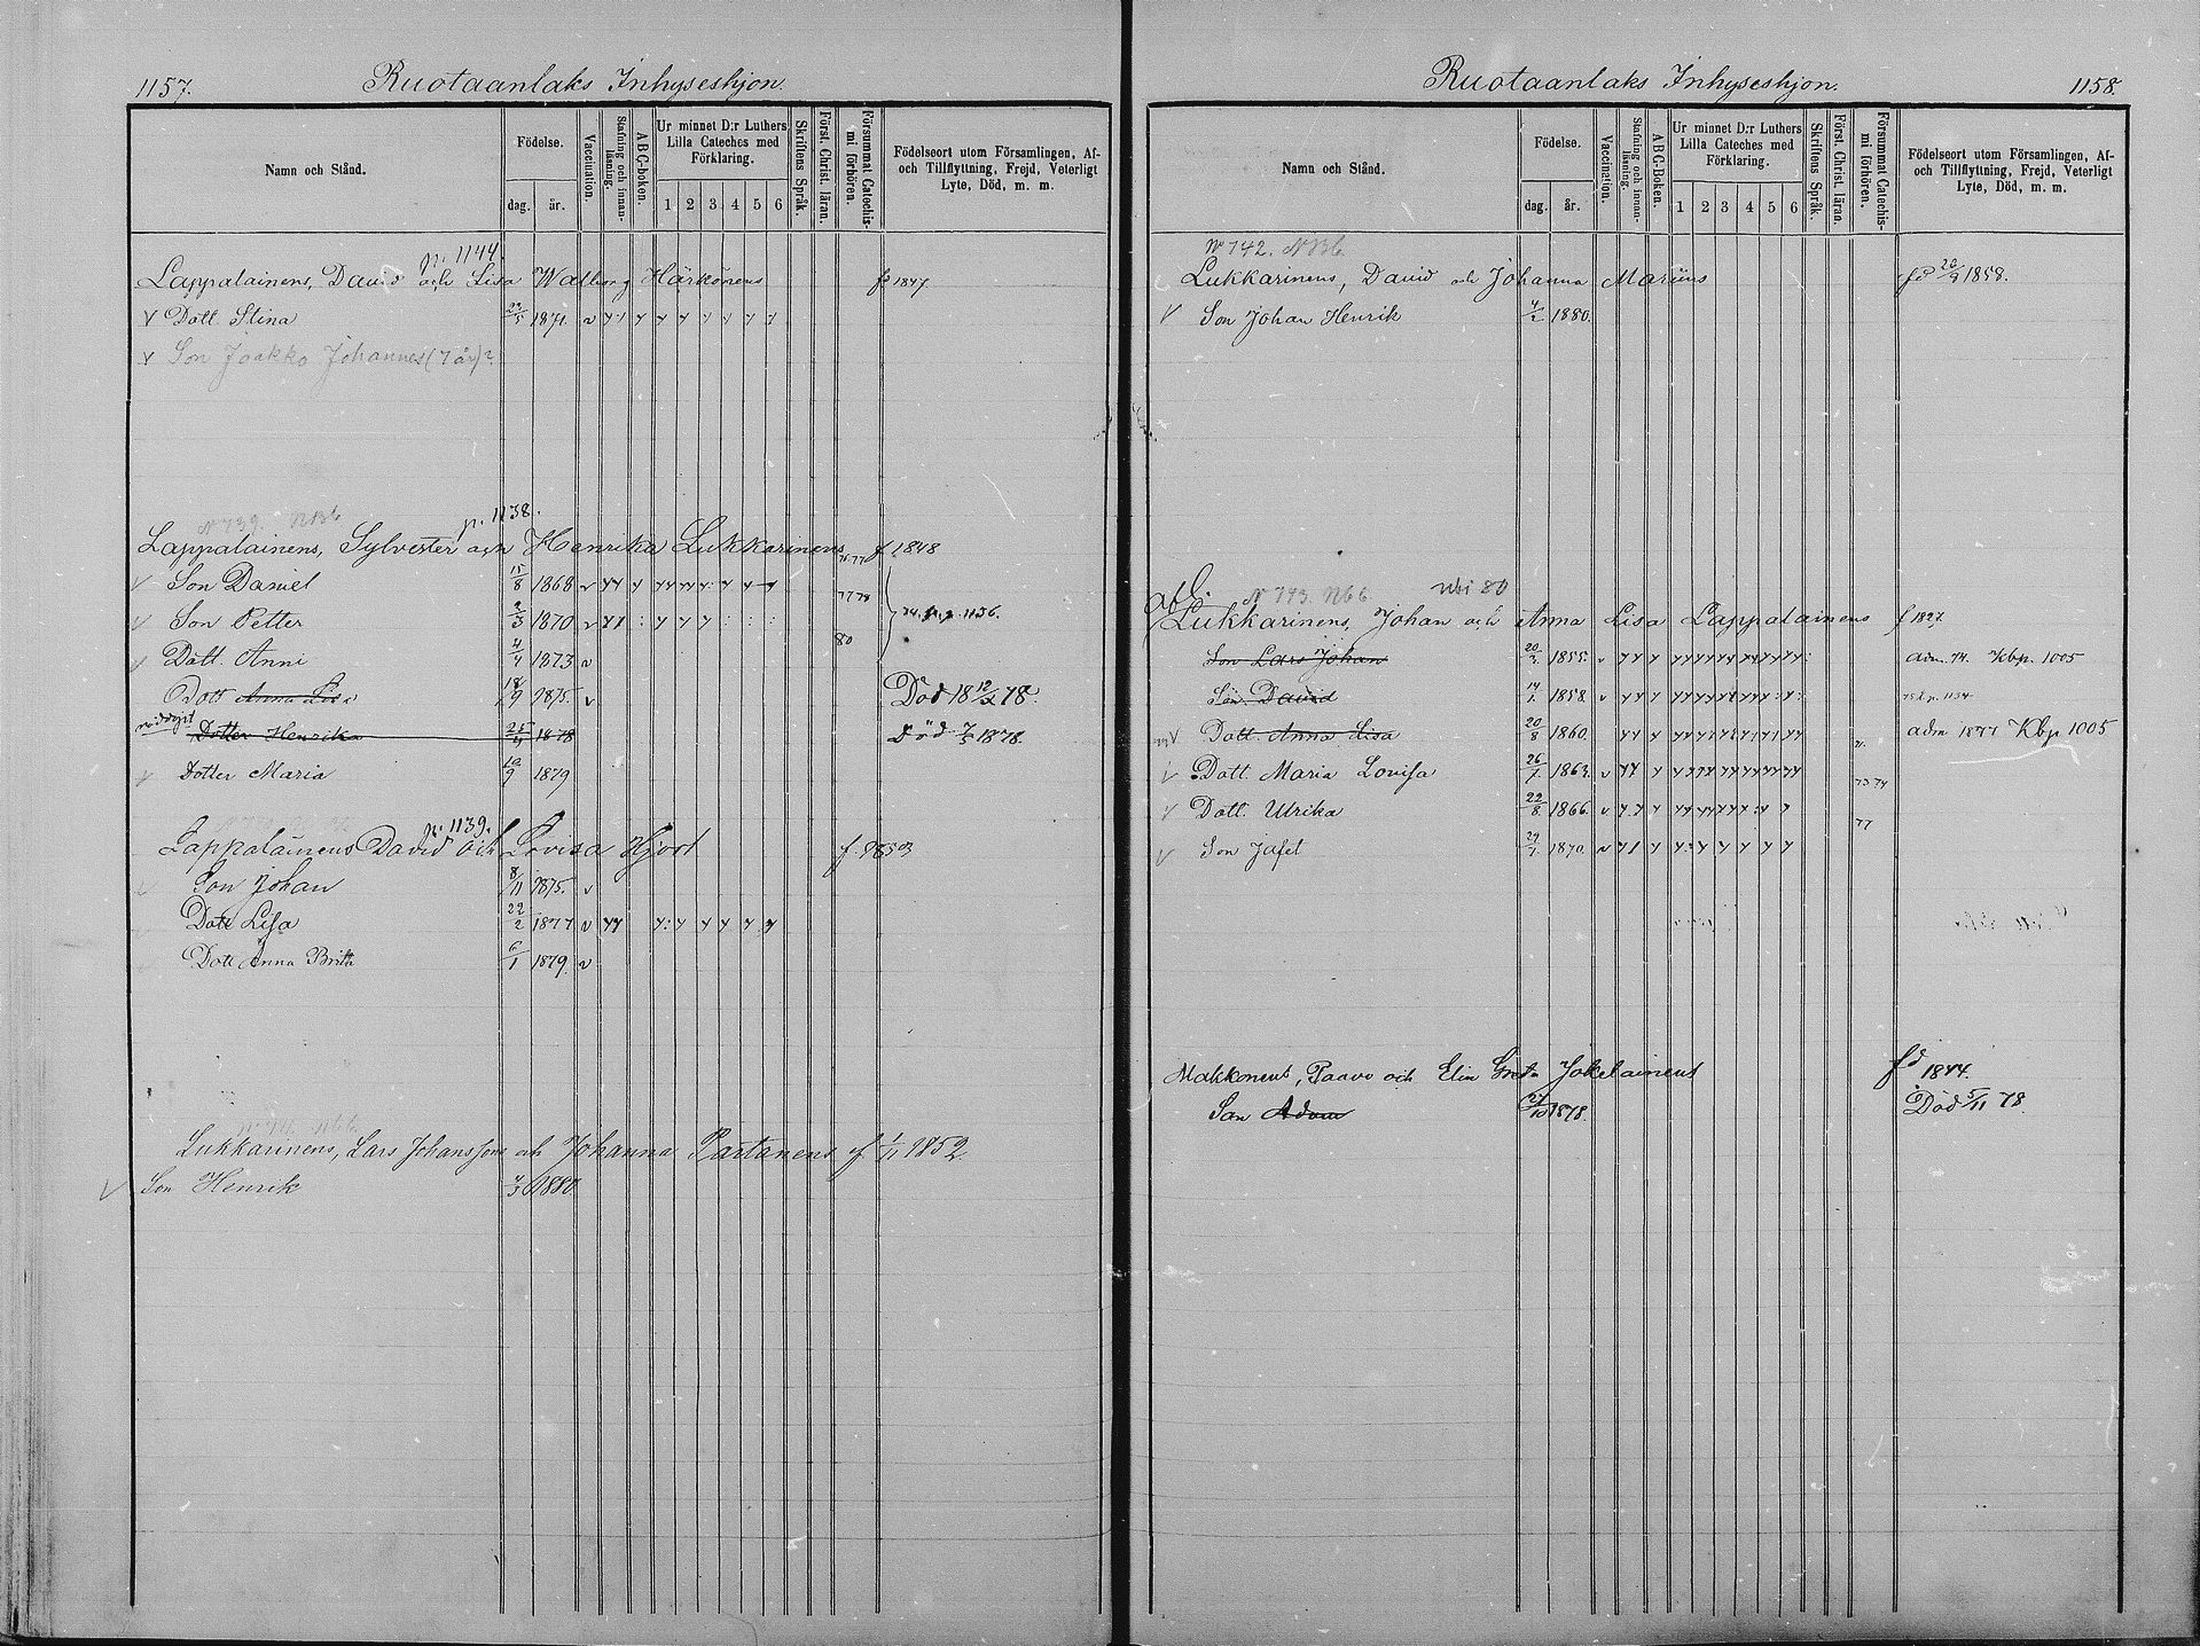 1157. Ruotaanlaks Inhyseshjon.
Namn och Stånd. Födelse. dag. år. Vaccination. Stafning och innanläsning. ABC-boken. Ur minnet D:r Luthers Lilla Cateches med Förklaring. 1 2 3 4 5 6 Skriftens Språk. Först. Christ. läran. Försummat Catechismi förhören. Födelseort utom Församlingen, Af- och Tillflyttning, Frejd, Veterligt Lyte, Död, m. m.
p. 1144.
Lappalainens, David och Lisa Walborg Härkönens fd 1847
Dott. Stina 22/5 1871.
Son Jaakko Johannes (7 år)?
N 739. NB6 p. 1138.
Lappalainens, Sylvester och Henrika Lukkarinens 76.77 f 1848
Son Daniel 15/8 1868 77 78
Son Petter 2/3 1870 p. 1136. 80
Dott. Anni 4/4 1873
Dott Anna Lisa 18/9 1875. Död 18 12/2 78.
nöddöpt Dotter Henrika 25/4 1878 Död 7/5 1878.
Dotter Maria 10/9 1879
p. 1139.
Lappalainens David och Lovisa Hjort f. 1850
Son Johan 8/11 1875.
Dott Lisa 22/2 1877
Dott Anna Britta 6/1 1879.
Lukkarinens, Lars Johansson och Johanna Partanens f 1/11 1852
Son Henrik 4/3 1880
Ruotaanlaks Inhyseshjon. 1158.
Namn och Stånd. Födelse. dag. år. Vaccination. Stafning och innanläsning. ABC-Boken. Ur minnet D:r Luthers Lilla Cateches med Förklaring. 1 2 3 4 5 6 Skriftens Språk. Först. Christ. läran. Försummat Catechismi förhören. Födelseort utom Församlingen, Af- och Tillflyttning, Frejd, Veterligt Lyte, Död, m. m.
No 742. NB6.
Lukkarinens, David och Johanna Mariüns fd 20/9 1858.
Son Johan Henrik 4/2 1880.
N 743. NB6
Lukkarinens, Johan och Anna Lisa Lappalainens f 1827
Son Lars Johan 20/3. 1855. adm. 74. Kbp. 1005
Son David 14/1. 1858. p. 1154
Dott. Anna Lisa 20/8 1860. adm 1877 Kbp 1005
Dott. Maria Lovisa 26/7. 1863. 73 74
Dott. Ulrika 22/8. 1866. 77
Son Jafet 29/7. 1870.
Makkonens, Paavo och Elin Greta Jokelainens fd 1844.
Son Adam 27/10 1878. Död 5/11 78.